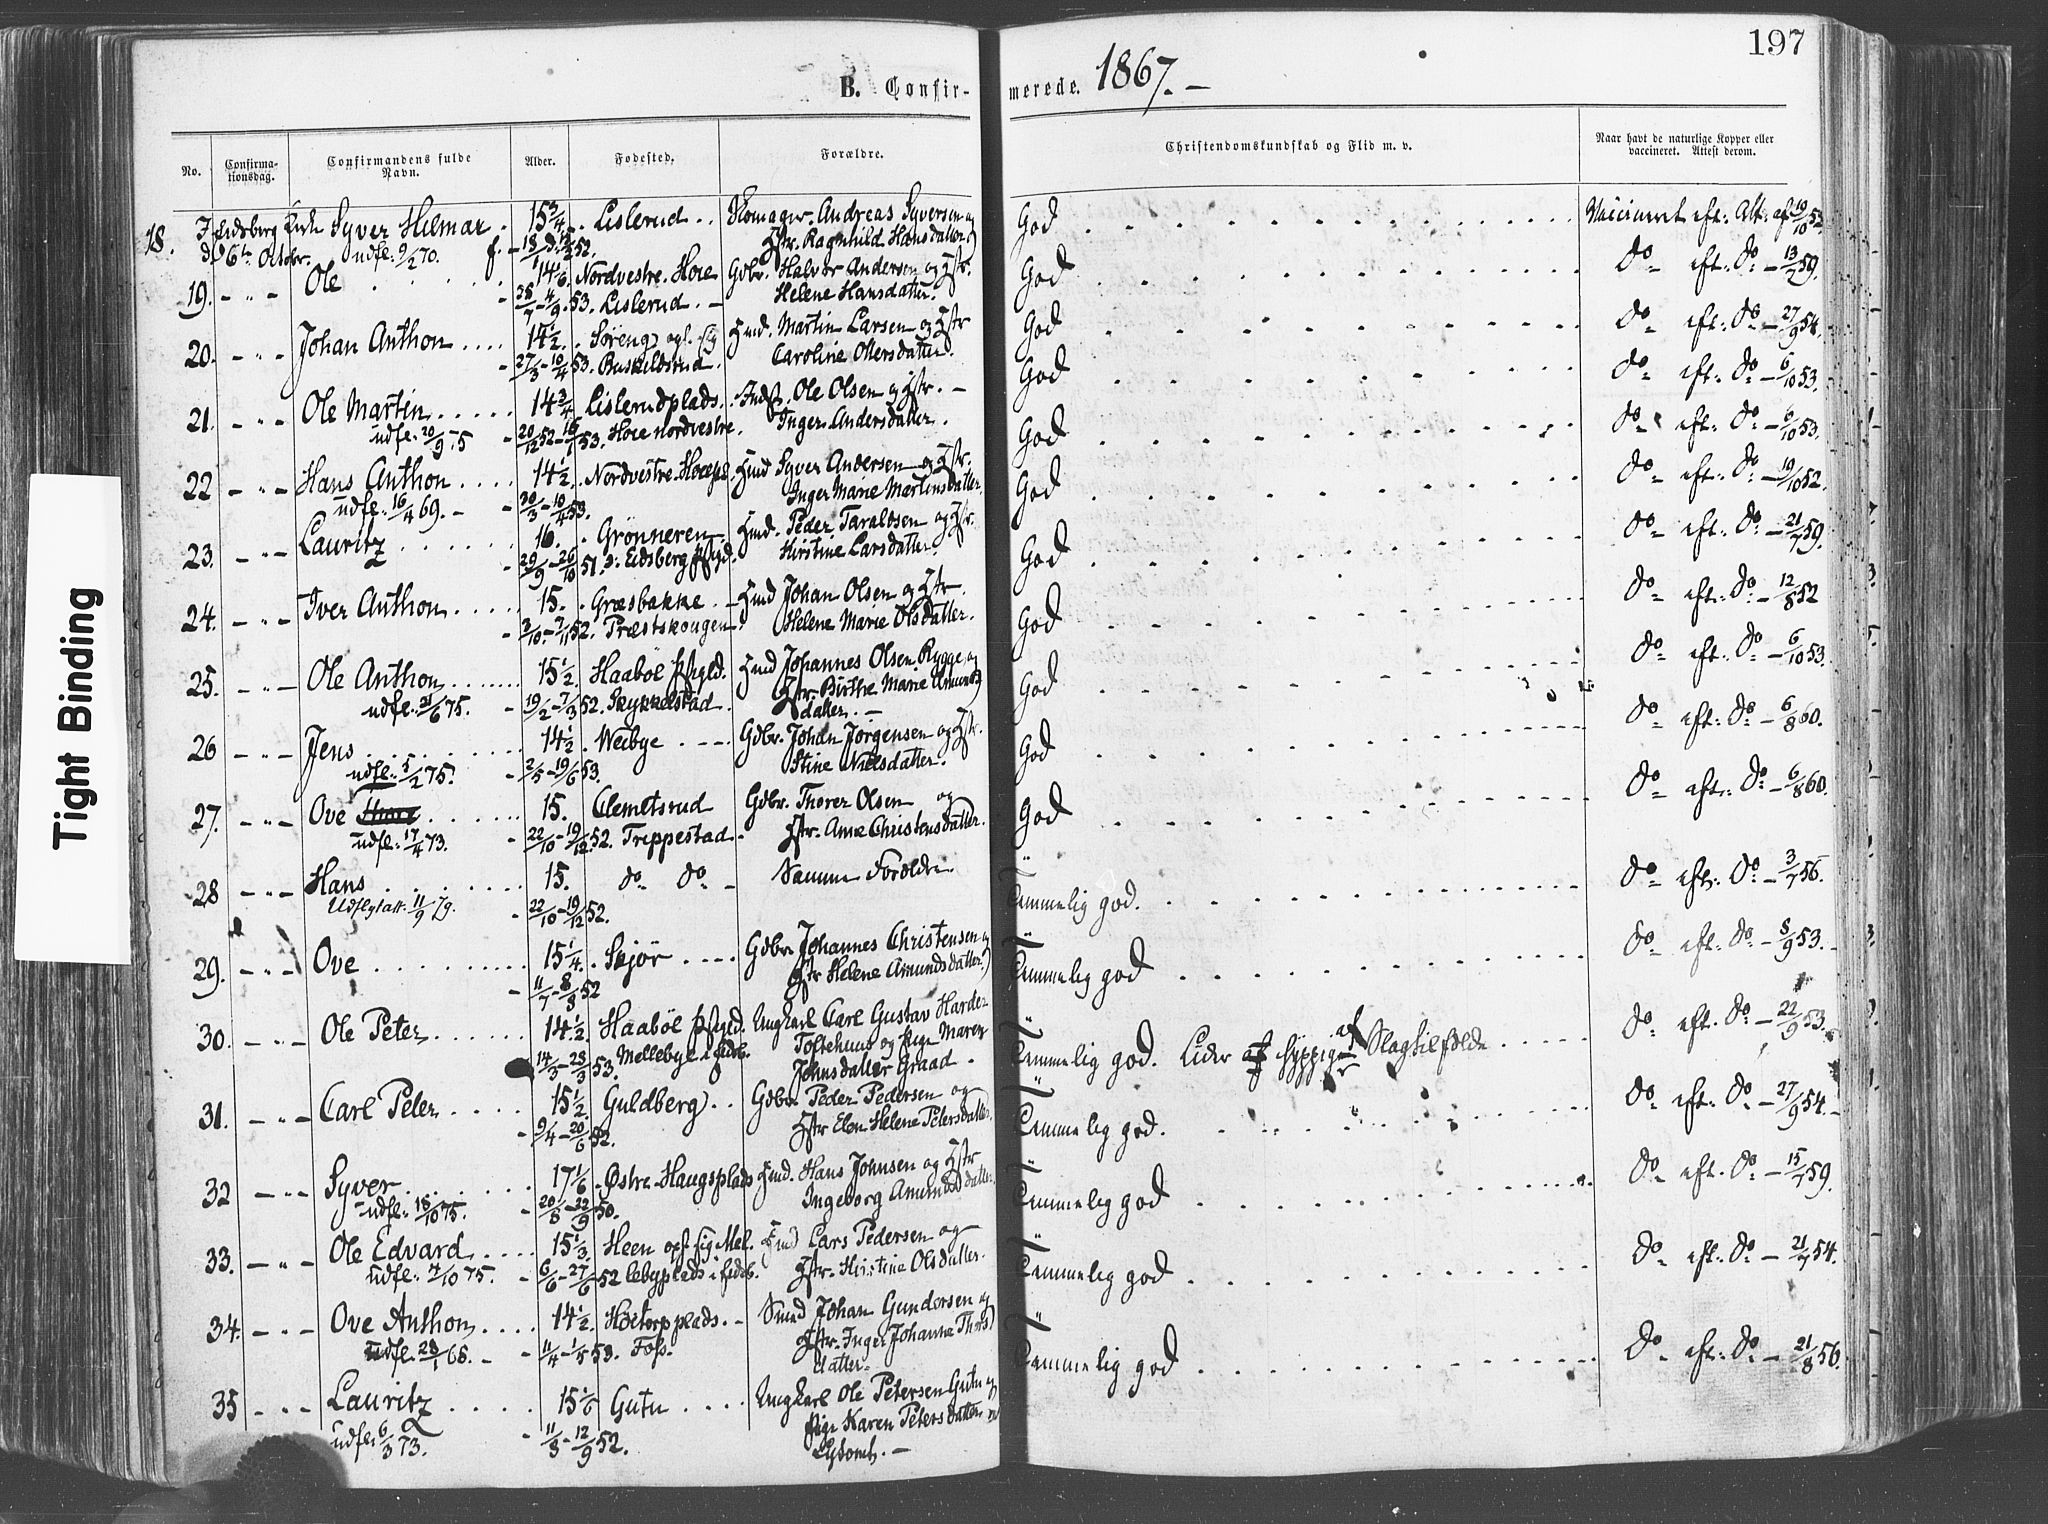 197
B. Confir-
merede. 1867. -
No.
Confirma-
tionsdag.
Confirmandens fulde
Navn.
Alder.
Fødested.
Forældre.
Christendomskundskab og Flid m. v.
Naar havt de naturlige Kopper eller
vaccineret. Attest derom.
18. I Eidsberg Kirke Syver Hilmar 15 3/4 Lislerud Andreas Syversen og God Vaccineret eft. Att. af 19/10 53
d. 6te October. udfl. 9/2 70. Hstr. Ragnhild Hansdatter
19. Ole 14 1/6 Nordvestre Hoie Gdbr. Halvor Andersen og Hstr. God do eft. do 13/2 59.
4/9 53. Lislerud Helene Hansdatter.
20. Johan Anthon 14 1/2 Søreng Hmd. Martin Larsen og Hstr God do eft. do 27/9 54.
27/3 - 10/4 53. Buskeldsrud. Caroline Ollersdatter.
21. Ole Martin 14 3/4 Lislerudplads Indst. Ole Olsen og Hstr. God do eft. do 6/10 53.
udfl. 20/9 75 20/12 52 - 16/1 53. Hoie nordvestre. Inger Andersdatter.
22 Hans Anthon 14 1/2 Nordvestre Hoiepl. Hmd Syver Andersen og Hstr. God do eft. do 6/10 53.
udfl. 16/4 69. 20/3 - 10/4 53. Inger Marie Martinsdatter.
23. Lauritz 16. Grønneren Hmd. Peder Taraldsen og Hstr. God do eft. do 19/10 52.
29/9 - 26/10 51. i Eidsberg Prgjld. Kirstine Larsdatter.
24. Iver Anthon 15. Græsbakke Hmd Johan Olsen og Hstr God do eft. do 21/7 59.
3/10 - 7/11 52. Præstskougen Helene Marie Olsdatter.
25. Ole Anthon 15 1/2 Haabøl Prgjld. Hmd Johannes Olsen Rygge og God do eft. do 12/8 52
udfl. 21/6 75. 19/2 - 7/3 52. Skykkelstad Hstr. Birthe Marie Amunds
datter.
26 Jens 14 1/2 Weibye Gdbr. Johan Jørgensen og Hstr. God do eft. do 6/10 53.
udfl. 5/2 75. 2/5 - 19/6 53. Stine Nielsdatter.
27. Ove 15. Clemetsrud Gdbr. Thorer Olsen og God do eft. do 6/8 60.
udfl. 17/4 73. 22/10 - 19/12 52. Treppestad Hstr. Anne Christensdatter.
28 Hans 15. do do Samme Foreldre God do eft. do 6/8 60.
Udflyttatt. 11/9 79. 22/10 - 19/12 52.
29. Ove 15 1/4 Skjør Gdbr. Johannes Christensen og Temmelig god. do eft. do 3/7 56.
11/7 - 8/8 52 Hstr Helene Amundsdatter.
30. Ole Peter 14 1/2 Haabøl Prgjld. Ungkarl Carl Gustav Harder Temmelig god do eft. do 5/9 53.
14/3 - 28/3 53. Mellebye i Eidsb. Toftehuus og Pige Maren
Johnsdatter Graad.
31. Carl Peter 15 1/2 Guldberg Gdbr Peder Pedersen og Temmelig god. Lider af Slagtilfælde do eft. do 22/9 53.
9/4 - 20/6 52. Hstr Elen Helene Petersdatter.
32 Syver 17 1/6 Østre Haugsplads Hmd. Hans Johnsen og Hstr Temmelig god. do eft. do 27/9 54.
udfl. 18/10 75. 20/8 - 22/9 50. Ingeborg Amundsdatter.
33. Ole Edvard 15 1/3 Heen opf. sig Mel. Hmd Lars Pedersen og Temmelig god do eft. do 15/7 59.
udfl. 4/10 75. 6/6 - 27/6 52 lebyplads i Eidsb. Hstr. Kirstine Olsdatter.
34. Ove Anthon 14 1/2 Høitorpplads Smed Johan Gundersen og Temmelig god do eft. do 21/7 54.
udfl. 28/1 68. 11/4 - 1/5 53. Fos. Hstr. Inger Johanne Thors
datter.
35 Lauritz 15 1/6 Gutu Ungkarl Ole Petersen Gutu og Temmelig god do eft. do 21/8 56.
udfl. 6/3 73. 11/8 - 12/9 52. Pige Karen Petersdatter
Tight Binding